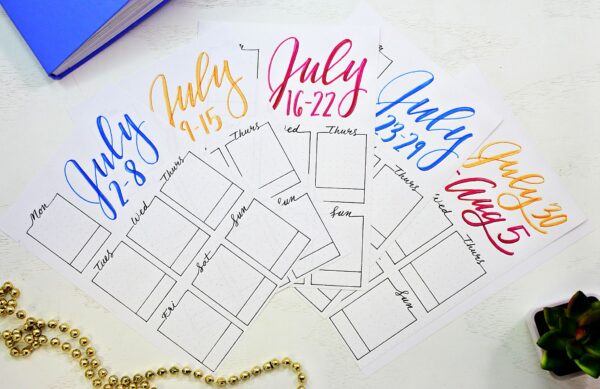 July
2-8
Mon
Tues
Wed
Thurs
Fri
Sat
Sun
July
9-15
Thurs
Sun
July
16-22
Wed
Thurs
Sun
July
23-29
Thurs
Sun
July 30
-Aug 5
Wed
Thurs